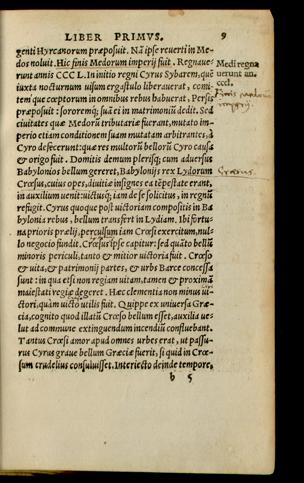 LIBER PRIMVS. 9
genti Hyrcanorum præposuit. Nā ipse reuerti in Me-
dos noluit. Hic finis Medorum imperij fuit. Regnaue-
runt annis CCC L. In initio regni Cyrus Sybarem, quē
iuxta nocturnum uisum ergastulo liberauerat, comi-
tem'que cœptorum in omnibus rebus habuerat, Persis
præposuit: sororemq; suā ei in matrimoniū dedit. Sed
ciuitates quæ Medorū tributariæ fuerant, mutato im-
perio etiam conditionem suam mutatam arbitrantes, à
Cyro defecerunt: quæ res multorū bellorū Cyro causa
& origo fuit. Domitis demum plerisq; cum aduersus
Babylonios bellum gereret, Babylonijs rex Lydorum
Crœsus, cuius opes, diuitiæ insignes ea tēpestate erant,
in auxilium uenit: uictusq; iam de se solicitus, in regnū
refugit. Cyrus quoque post uictoriam compositis in Ba
bylonia rebus, bellum transfert in Lydiam. Ibi fortu-
na prioris prælij, perculsum iam Crœsi exercitum, nul-
lo negocio fundit. Crœsus ipse capitur: sed quāto bellū
minoris periculi, tanto & mitior uictoria fuit. Crœso
& uita, & patrimonij partes, & urbs Barce concessa
sunt: in qua etsi non regiam uitam, tamen & proximā
maiestati regiæ degeret. Hæc clementia non minus ui-
ctori, quàm uicto utilis fuit. Quippe ex uniuersa Græ-
cia, cognito quod illatū Crœso bellum esset, auxilia ue-
lut ad commune extinguendum incendiū confluebant.
Tantus Crœsi amor apud omnes urbes erat, ut passu-
rus Cyrus graue bellum Græciæ fuerit, si quid in Crœ-
sum crudelius consuluisset. Interiecto deinde tempore,
b 5
Medi regna
uerunt an.
cccl.
Finis medorum
imperij.
Crœsus.